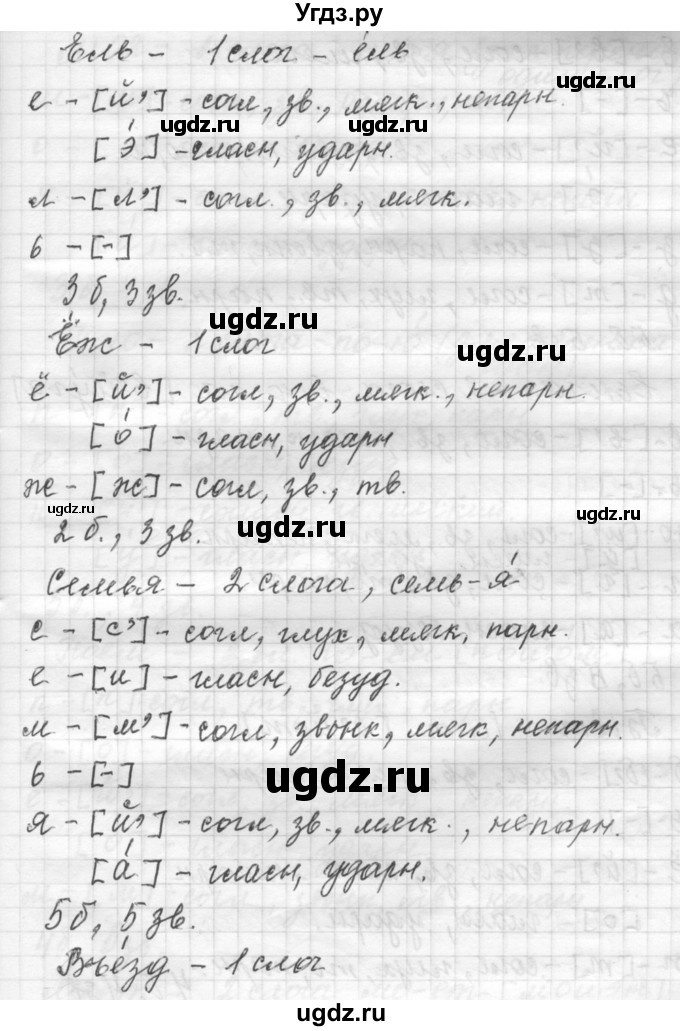 Угдз.ру
Ель - 1 слог - ель
е - [й'] - согл, зв., мягк., непарн.
ugdz.ru ugdz.ru
[э́] - гласн, ударн.
л - [л'] - согл., зв., мягк.
ь - [-]
3 б, 3 зв.
ugdz.ru
Ёж - 1 слог
ugdz.ru
ё - [й'] - согл, зв., мягк., непарн.
[о́] - гласн, ударн
ж - [ж] - согл, зв., тв.
ugdz.ru ugdz.ru ugdz.ru
2 б., 3 зв.
Семья - 2 слога, семь-я́
с - [с'] - согл, глух, мягк, парн.
ugdz.ru
е - [и] - гласн, безуд.
м - [м'] - согл, звонк, мягк, непарн.
ь - [-]
ugdz.ru
я - [й'] - согл, зв., мягк., непарн.
[а́] - гласн, ударн.
ugdz.ru ugdz.ru
5 б, 5 зв.
Въе́зд - 1 слог
ugdz.ru ugdz.ru
ugdz.ru